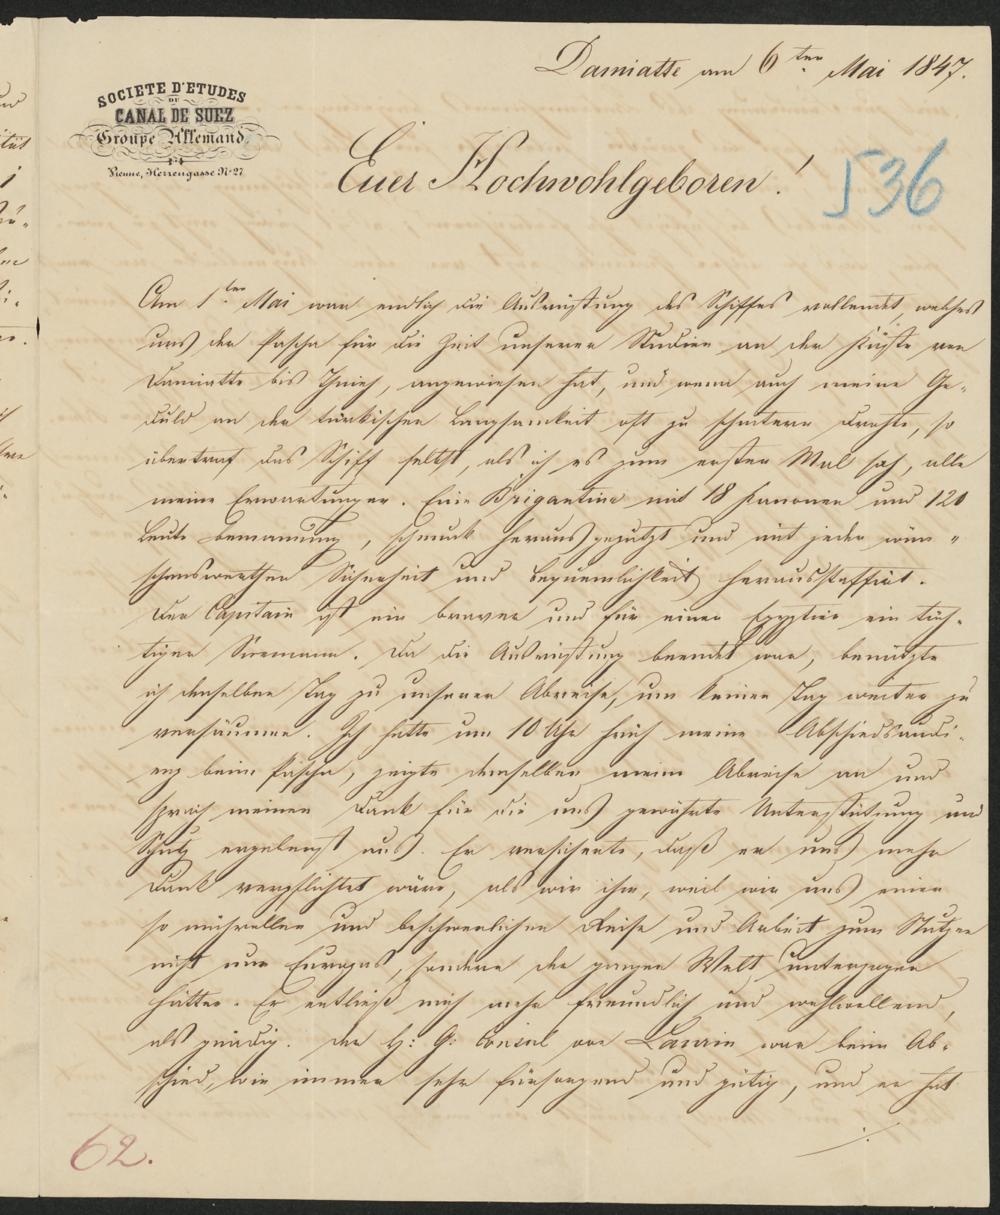 Damiatte am 6ten Mai 1847.
SOCIETE D'ETUDES
DU
CANAL DE SUEZ
Groupe Allemand.
Vienne, Herrengasse No 27
Euer Hochwohlgeboren!
536
Am 1ten Mai war endlich die Ausrüstung des Schiffes vollendet, welches
uns der Pascha für die Zeit unserer Studien an der Küste von
Damiatte bis Tineh, angewiesen hat, und wenn auch meine Ge-
duld an der türkischen Langsamkeit oft zu scheitern drohte, so
übertraf das Schiff selbst, als ich es zum ersten Mal sah, alle
meine Erwartungen. Eine Brigantine mit 18 Kanonen und 120
Leute Bemannung, schmuck herausgeputzt und mit jeder wün-
schenswerthen Sicherheit und Bequemlichkeit herausstaffirt.
Der Capitain ist ein braver und für einen Egyptier ein tüch-
tiger Seemann. Da die Ausrüstung beendet war, benützte
ich denselben Tag zu unserer Abreise, um keinen Tag weiter zu
versäumen. Ich hatte um 10 Uhr früh meine Abschiedsaudi-
enz beim Pascha, zeigte demselben meine Abreise an und
sprach meinen Dank für die uns gewährte Unterstützung und
Schutz ergebenst aus. Er versicherte, daß er uns mehr
Dank verpflichtet wäre, als wir ihm, weil wir uns einer
so mühevollen und beschwerlichen Reise und Arbeit zum Nutzen
nicht nur Europas, sondern der ganzen Welt unterzogen
hätten. Er entließ mich mehr freundlich und wohlwollend,
als gnädig. Der H: G: Consul von Laurin war beim Ab-
schied, wie immer sehr fürsorgend und gütig, und er hat
62.